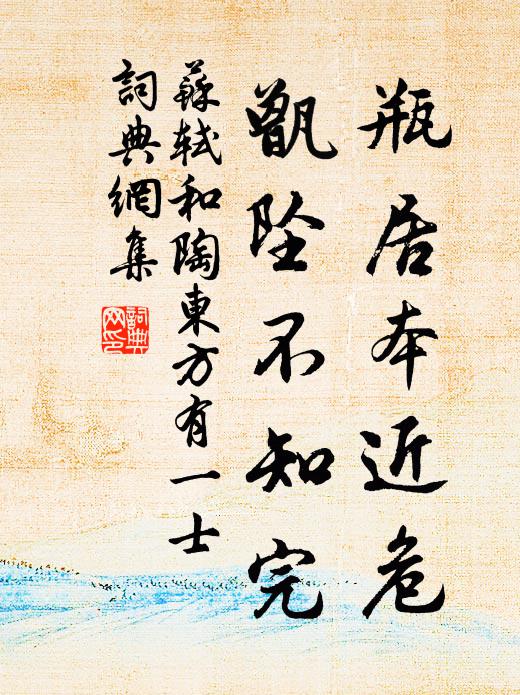 瓶居本近危
甑坠不知完
蘇軾和陶東方有一士
詞典網集
詞典网印